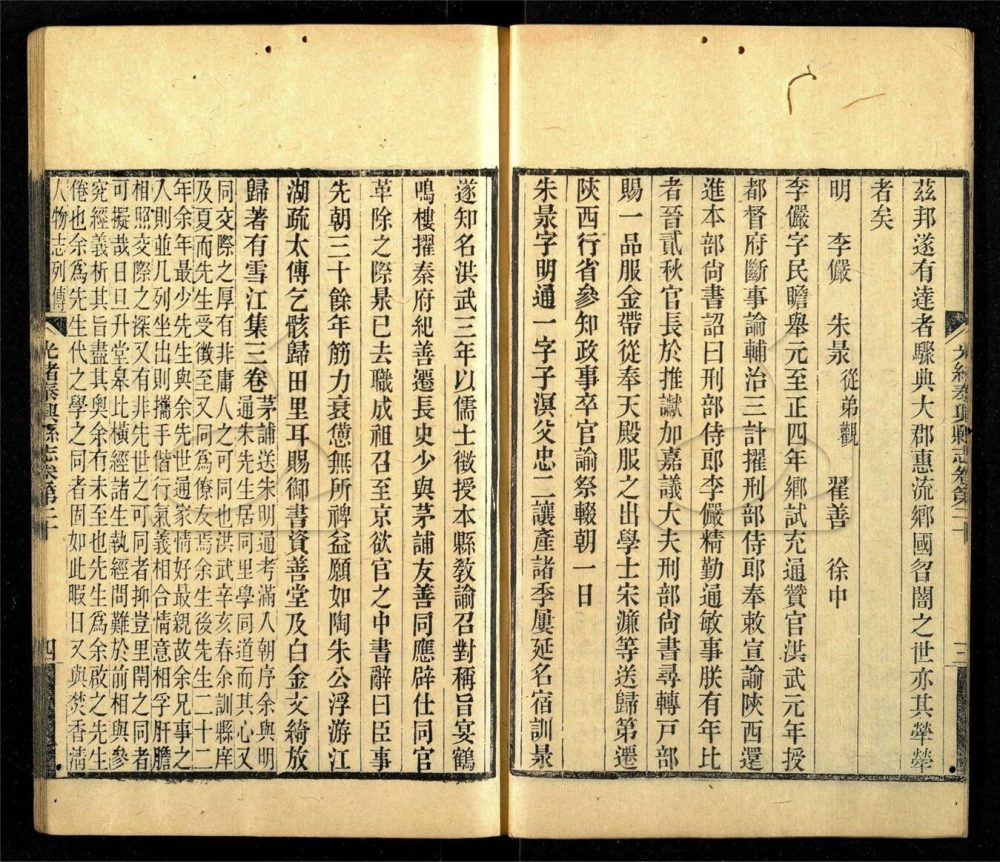 茲邦遂有達者驟典大郡惠流鄉國曶闇之世亦其犖犖
者矣
明　李儼　朱㬌從弟觀　翟善　徐中
李儼字民瞻舉元至正四年鄉試充通贊官洪武元年授
都督府斷事諭輔治三計擢刑部侍郎奉敕宣諭陝西還
進本部尙書詔曰刑部侍郎李儼精勤通敏事朕有年比
者晉貳秋官長於推讞加嘉議大夫刑部尙書尋轉戸部
賜一品服金帶從奉天殿服之出學士宋濂等送歸第遷
陝西行省參知政事卒官諭祭輟朝一日
朱㬌字明通一字子溟父忠二讓產諸季屢延名宿訓㬌
光緒泰興縣志卷第二十
三
遂知名洪武三年以儒士徵授本縣敎諭召對稱旨宴鶴
鳴樓擢秦府紀善遷長史少與茅誧友善同應辟仕同官
革除之際㬌已去職成祖召至京欲官之中書辭曰臣事
先朝三十餘年筋力衰憊無所裨益願如陶朱公浮游江
湖疏太傅乞骸歸田里耳賜御書資善堂及白金文綺放
歸著有雪江集三卷茅誧送朱明通考滿入朝序余與明
通朱先生居同里學同道而其心又
同交際之厚有非庸人之可同也洪武辛亥春余訓縣庠
及夏而先生受徵至又同爲僚友焉余生後先生二十二
年余年最少先生與余先世通家情好最親故余兄事之
入則並几列坐出則攜手偕行氣義相合情意相孚肝膽
相照交際之深又有非先世之可同者抑豈里閈之同者
可擬哉日日升堂皋比橫經諸生執經問難於前相與參
究經義析其旨盡其奧余有未至也先生爲余啟之先生
倦也余爲先生代之學之同者固如此暇日又與焚香淸
人物志列傳
光緒泰興縣志卷第二十
四